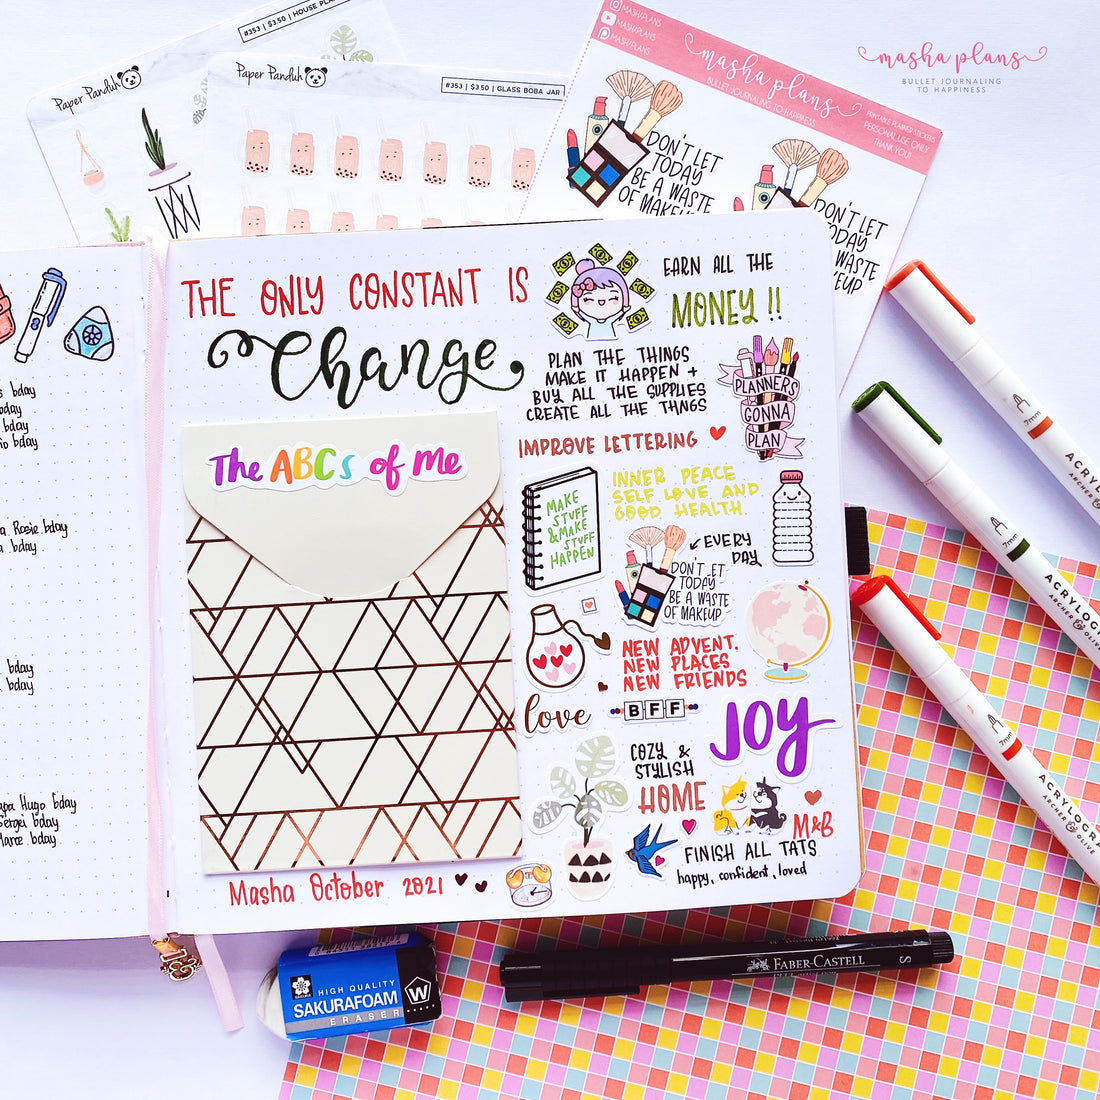 #353 | $3.50 | HOUSE PLA
Paper Panduh
Paper Panduh
#353 | $3.50 | GLASS BOBA JAR |
MASHAPLANS
MASHAPLANS
MASHAPLANS
masha plans
BULLET JOURNALING TO HAPPINESS
PRINTABLE PLANNER STICKERS
PERSONAL USE ONLY
THANK YOU!
DON'T LET
TODAY
BE A WASTE
OF MAKEUP
DON'T LET
TODAY
WASTE
EUP
masha plans
BULLET JOURNALING
TO HAPPINESS
s bday
bday
bday
Rosie bday
bday
bday
bday
Hugo bday
Sergei bday
bday
THE ONLY CONSTANT IS
Change
The ABCs of Me
Masha October 2021
EARN ALL THE
MONEY !!
PLAN THE THINGS
MAKE IT HAPPEN +
BUY ALL THE SUPPLIES
CREATE ALL THE THNGS
PLANNERS
GONNA
PLAN
IMPROVE LETTERING
MAKE
STUFF
& MAKE
STUFF
HAPPEN
INNER PEACE
SELF LOVE AND
GOOD HEALTH
EVERY
DAY
DON'T LET
TODAY
BE A WASTE
OF MAKEUP
NEW ADVENT.
NEW PLACES
NEW FRIENDS
love
BFF
JOY
COZY &
STYLISH
HOME
M&B
FINISH ALL TATS
happy, confident, loved
ACRYLOG
ARCHER & OLIVE
2mm
ACRYLOGRA
ARCHER & OLIVE
2mm
ACRYLOGRA
ARCHER & OLIVE
2mm
SAKURA
HIGH QUALITY
SAKURAFOAM
ERASER
W
FABER-CASTELL
S